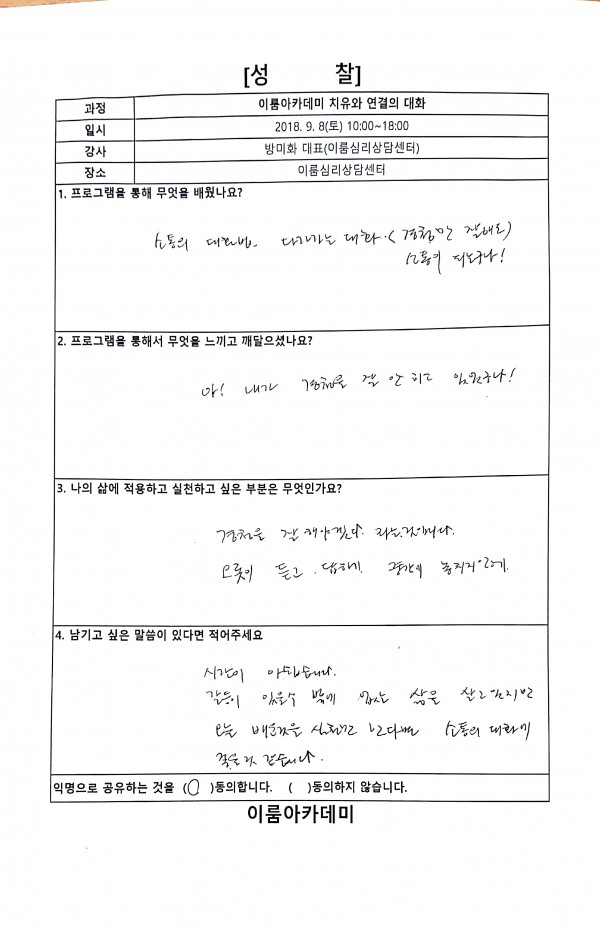 [성 찰]
과정 이룸아카데미 치유와 연결의 대화
일시 2018. 9. 8(토) 10:00~18:00
강사 방미화 대표(이룸심리상담센터)
장소 이룸심리상담센터
1. 프로그램을 통해 무엇을 배웠나요?
소통의 대화법. 다가가는 대화. (경청만 잘해도)
소통이 되는구나!
2. 프로그램을 통해서 무엇을 느끼고 깨달으셨나요?
아! 내가 경청을 잘 안 하고 있었구나!
3. 나의 삶에 적용하고 실천하고 싶은 부분은 무엇인가요?
경청을 잘 해야겠다. 라는것입니다.
오롯이 듣고. 답하기.
4. 남기고 싶은 말씀이 있다면 적어주세요
시간이 아쉽습니다.
갈등이 있을수 밖에 없는 삶을 살고있지만
오늘 배운것을 소통의 대화가
될것 같습니다.
익명으로 공유하는 것을 (O)동의합니다. ( )동의하지 않습니다.
이룸아카데미